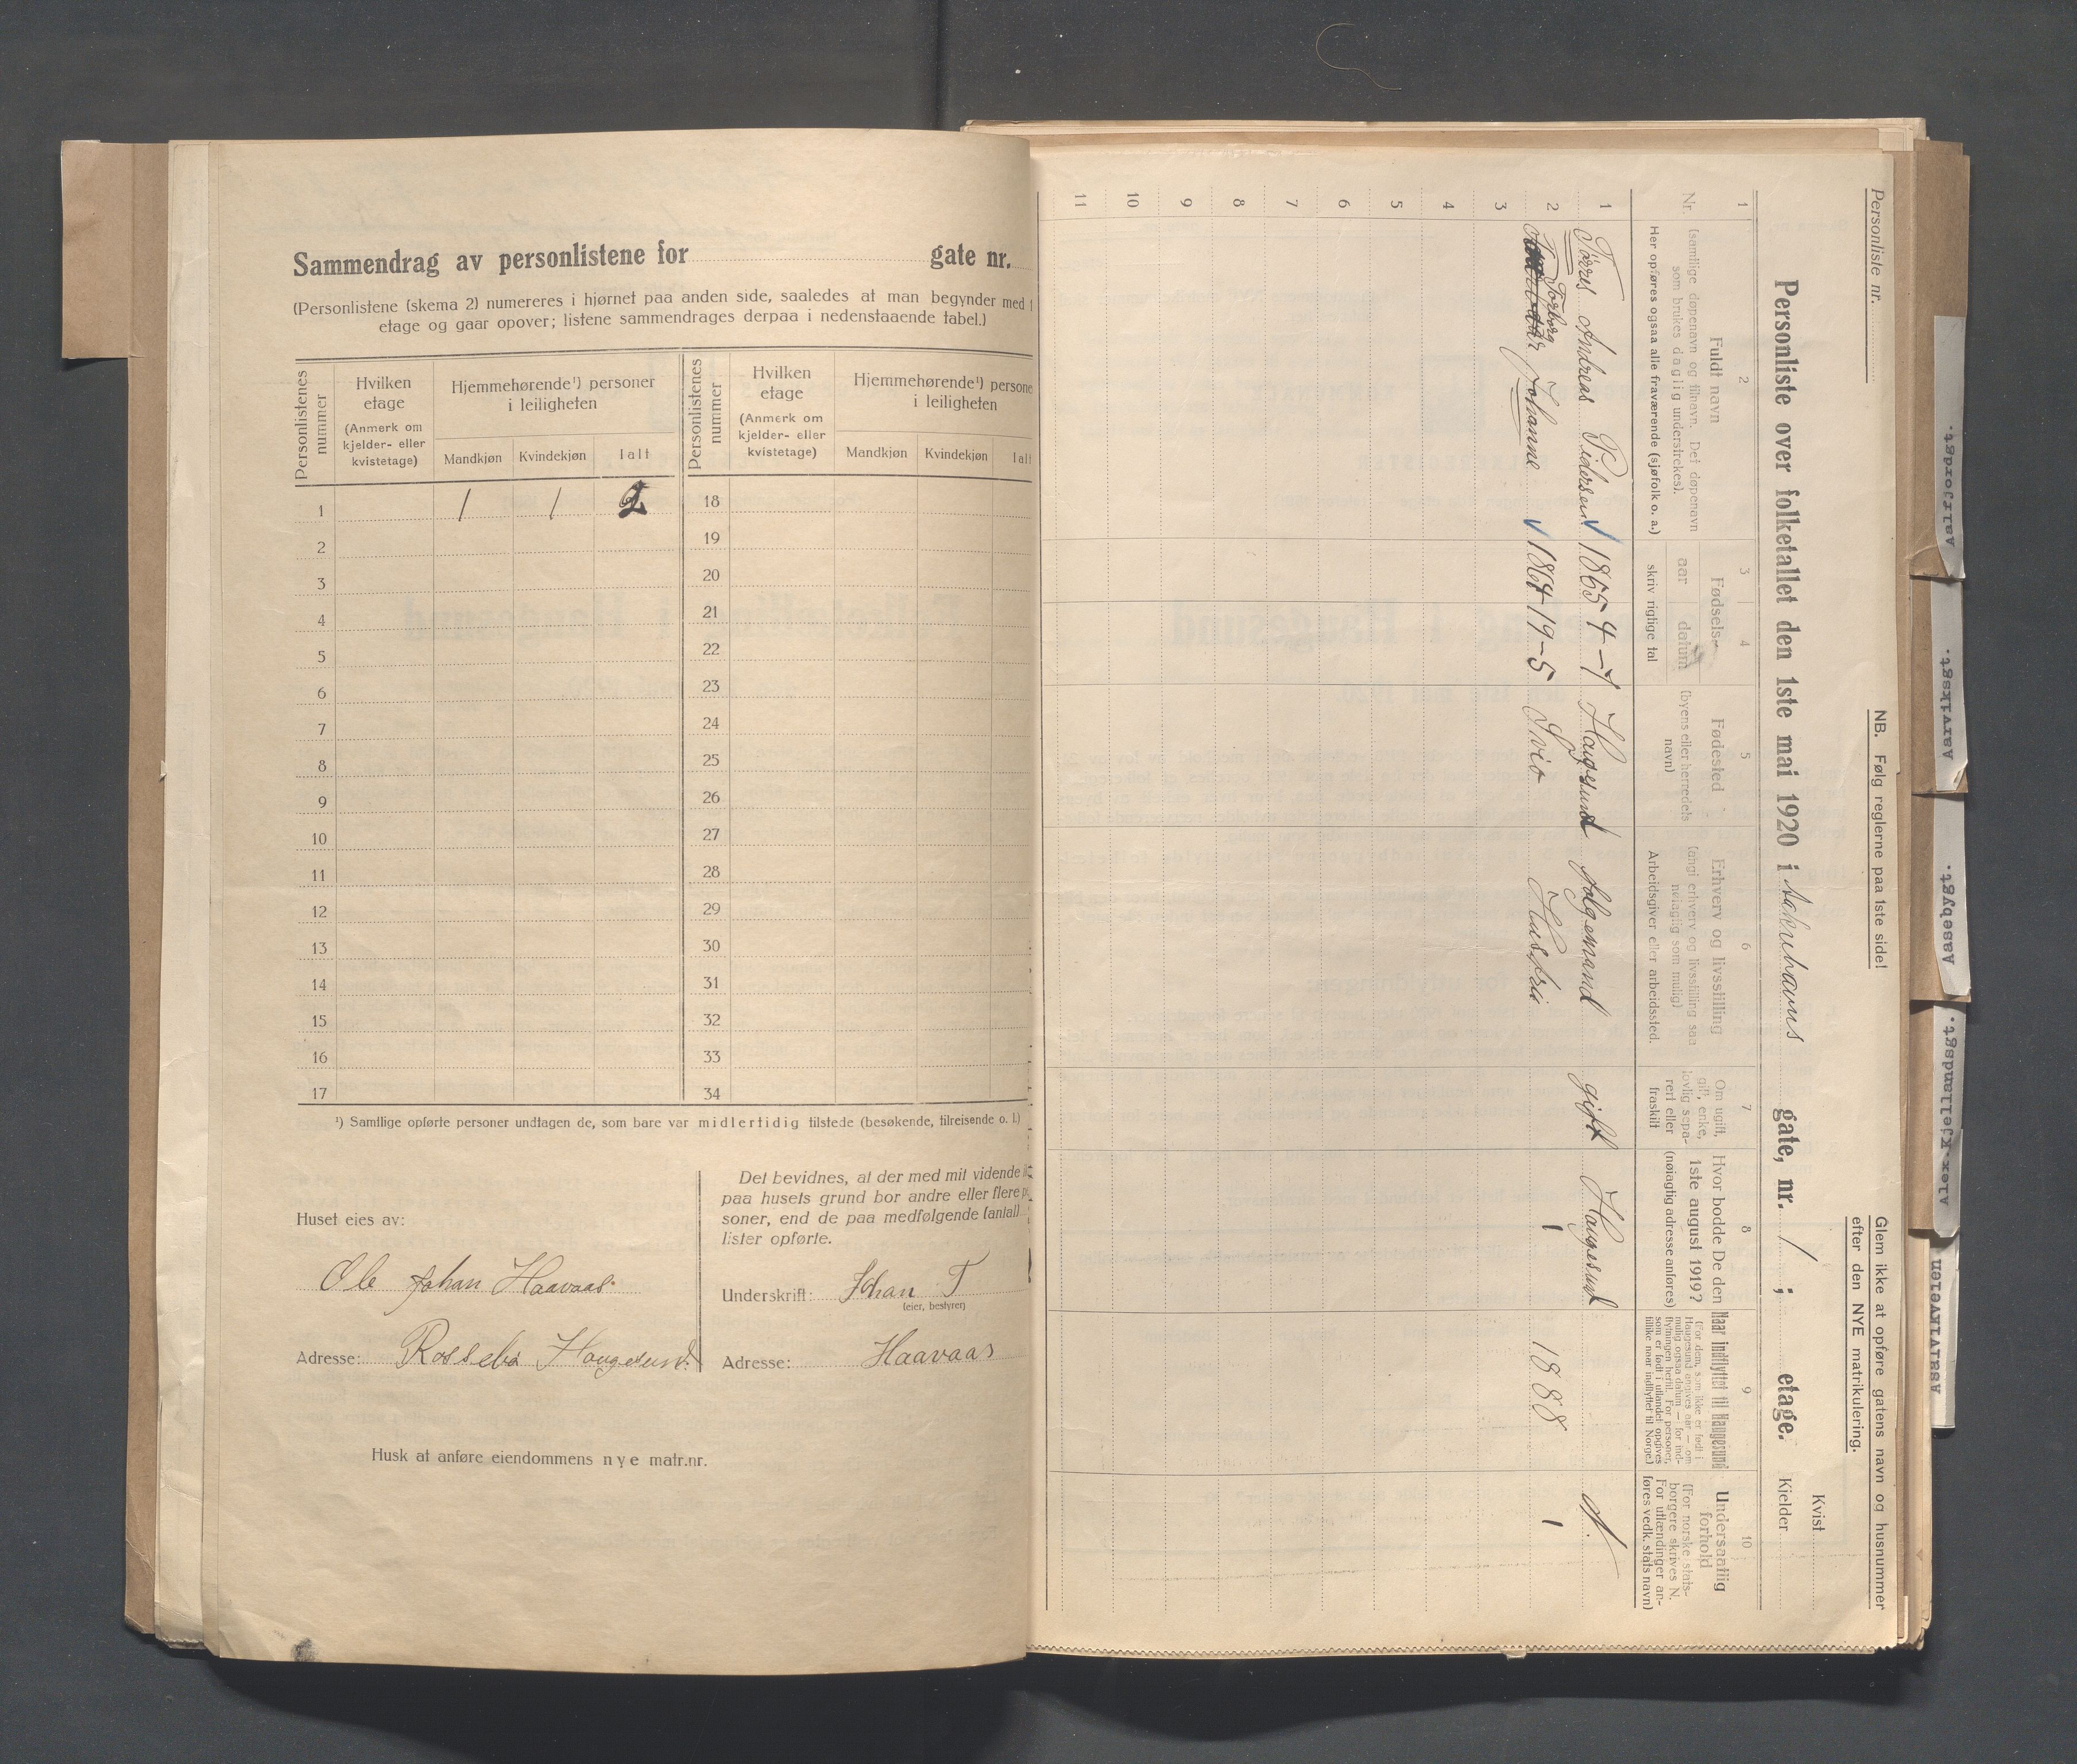 Sammendrag av personlistene for gate nr.
(Personlistene (skema 2) numereres i hjørnet paa anden side, saaledes at man begynder med
etage og gaar opover; listene sammendrages derpaa i nedenstaaende tabel.)
Personlistenes nummer
Hvilken etage
(Anmerk om kjelder- eller kvistetage)
Hjemmehørende¹) personer i leiligheten
Mandkjøn Kvindekjøn Ialt
Personlistenes nummer
Hvilken etage
(Anmerk om kjelder- eller kvistetage)
Hjemmehørende¹) persone
i leiligheten
Mandkjøn Kvindekjøn Ialt
1 1 1 2 18
2 19
3 20
4 21
5 22
6 23
7 24
8 25
9 26
10 27
11 28
12 29
13 30
14 31
15 32
16 33
17 34
¹) Samtlige opførte personer undtagen de, som bare var midlertidig tilstede (besøkende, tilreisende o. l.)
Huset eies av:
Ole Johan Haavaas
Adresse: Rossebø Haugesund.
Det bevidnes, at der med mit vidende
paa husets grund bor andre eller flere
soner, end de paa medfølgende (antal)
lister opførte.
Underskrift: Johan T
(eier, bestyrer)
Adresse: Haavaas
Husk at anføre eiendommens nye matr.nr.
Personliste nr.
NB. Følg reglerne paa 1ste side!
Glem ikke at opføre gatens navn og husnummer
efter den NYE matrikulering.
Personliste over folketallet den 1ste mai 1920 i gate, nr. 1 ; etage.
Kvist
Kjelder
1 2 3 4 5 6 7 8 9 10
Nr.
Fuldt navn
(samtlige døpenavn og tilnavn. Det døpenavn
som brukes daglig understrekes).
Her opføres ogsaa alle fraværende (sjøfolk o. a.)
Fødsels-
aar datum
skriv rigtige tal
Fødested
(byens eller herredets
navn)
Erhverv og livsstilling
(angi erhverv og livsstilling saa
nøiagtig som mulig)
Arbeidsgiver eller arbeidssted.
Om ugift,
gift, enke,
lovlig sepa-
rert eller
fraskilt
Hvor bodde De den
1ste august 1919?
(nøiagtig adresse anføres)
Naar indflyttet til Haugesund
(For dem, som ikke er født i
Haugesund angives aar – om
mulig ogsaa datum – for ind-
flytningen hertil. For personer,
som er født i utlandet opgives
tillike naar indflyttet til Norge.)
Undersaatlig
forhold
(For norske stats-
borgere skrives N.
For utlændinger an-
føres vedk. stats navn)
1 Tørres Andreas Pedersen 1865 4-7 Haugesund følgemand gift Haugesund N.
2 Torborg Johanne 1864 19-5 Sveio Husfru 1888
3
4
5
6
7
8
9
10
11
Aalfjordgt.
Aarviksgt.
Aasebygt.
Alex.Kjellandsgt.
Asalvikveien